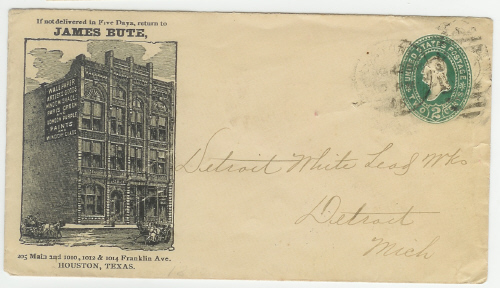 If not delivered in Five Days, return to
JAMES BUTE,
WALL PAPER
ARTISTS GOODS
WINDOW SHADES
PARIS GREEN
LONDON PURPLE
PAINTS
WINDOW GLASS
405 Main and 1010, 1012 & 1014 Franklin Ave.
HOUSTON, TEXAS.
UNITED STATES POSTAGE
2
Detroit White Lead Wks
Detroit
Mich